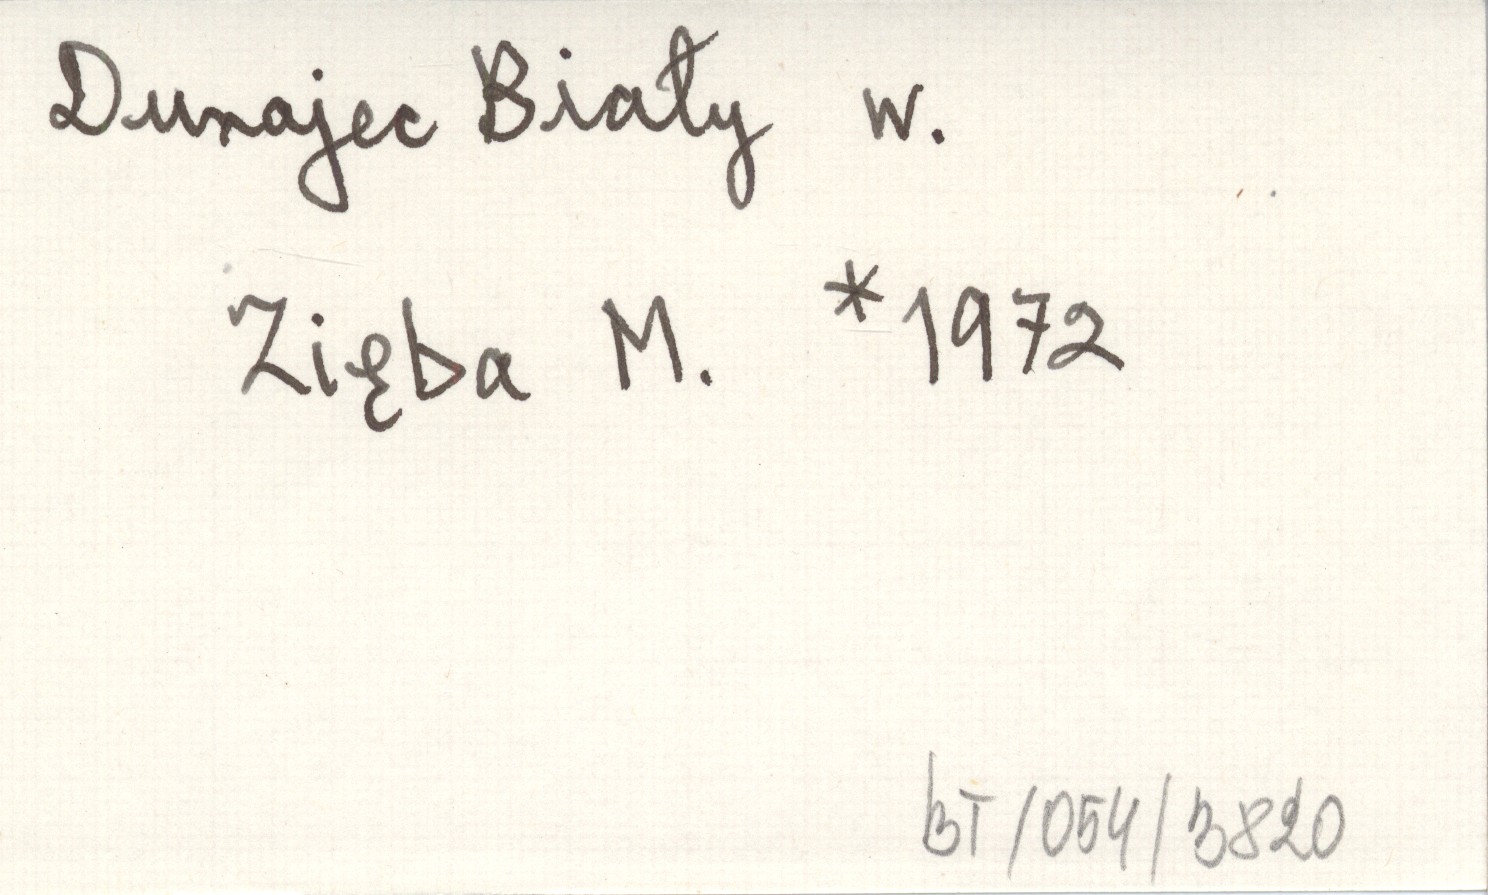 Dunajec Biały w.
Zięba M. *1972
BT/054/3820